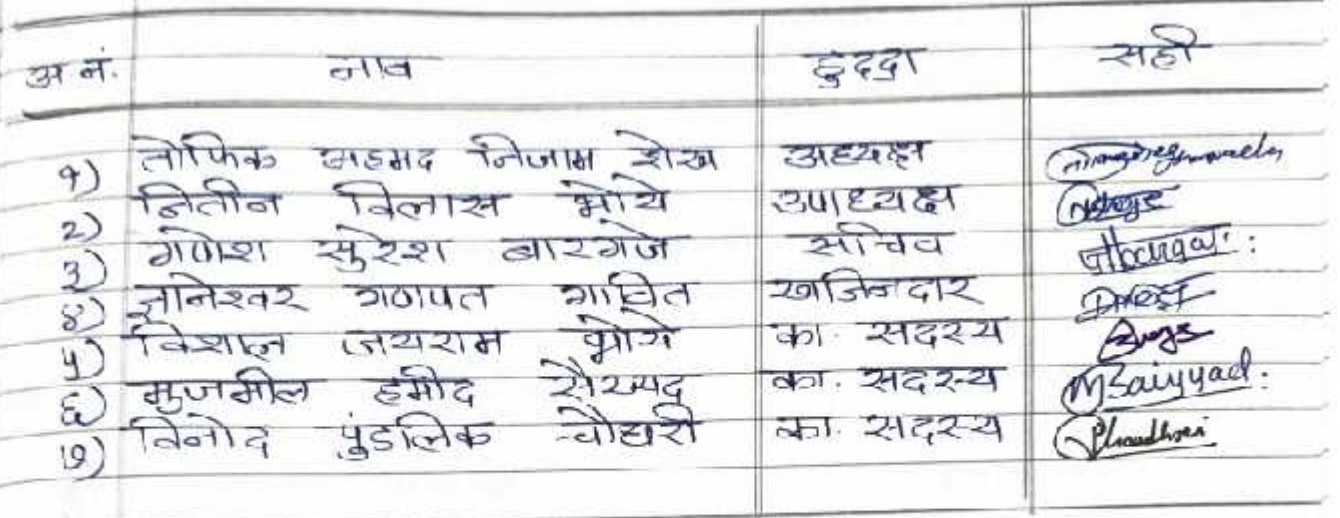 अ नं. नाव हुद्दा सही
१) तोफिक अहमद निजाम शेख अध्यक्ष
२) नितीन विलास भोये उपाध्यक्ष
३) गणेश सुरेश बारगजे सचिव
४) ज्ञानेश्वर गणपत गावित खजिनदार
५) विशाल जयराम भोये का. सदस्य
६) मुजमील हमीद सैय्यद का. सदस्य MSaiyyad.
७) विनोद पुंडलिक चौधरी का. सदस्य